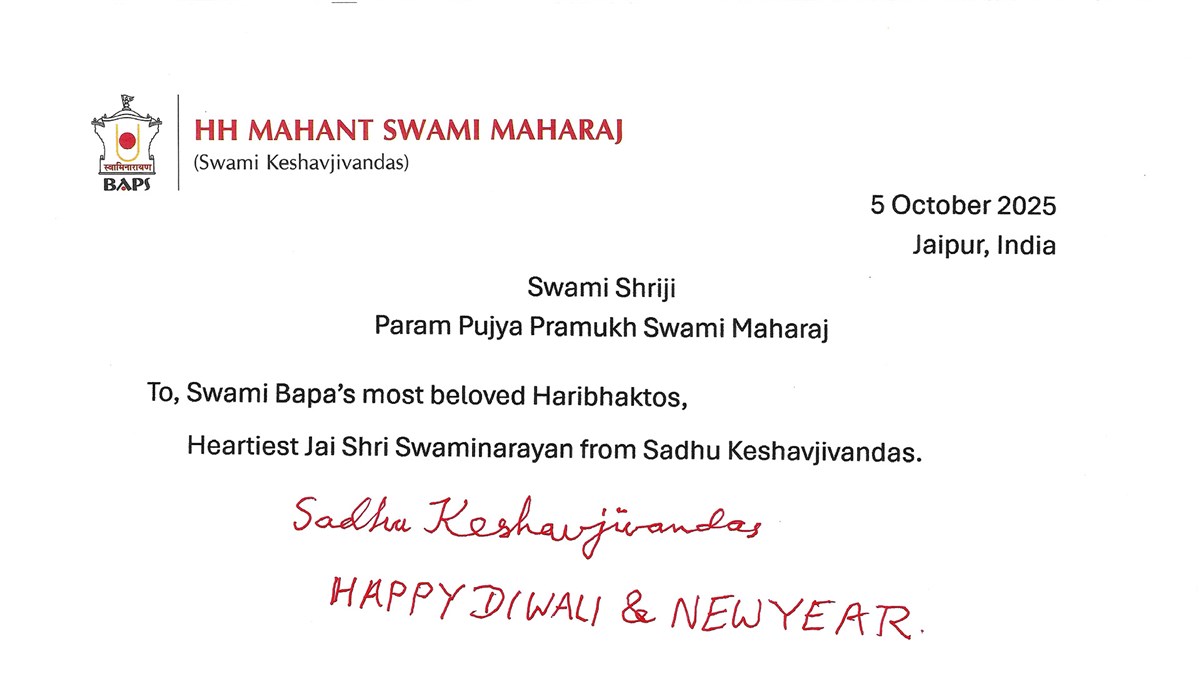 स्वामिनारायण
BAPS
HH MAHANT SWAMI MAHARAJ
(Swami Keshavjivandas)
5 October 2025
Jaipur, India
Swami Shriji
Param Pujya Pramukh Swami Maharaj
To, Swami Bapa’s most beloved Haribhaktos,
Heartiest Jai Shri Swaminarayan from Sadhu Keshavjivandas.
Sadhu Keshavjivandas
HAPPY DIWALI & NEW YEAR.